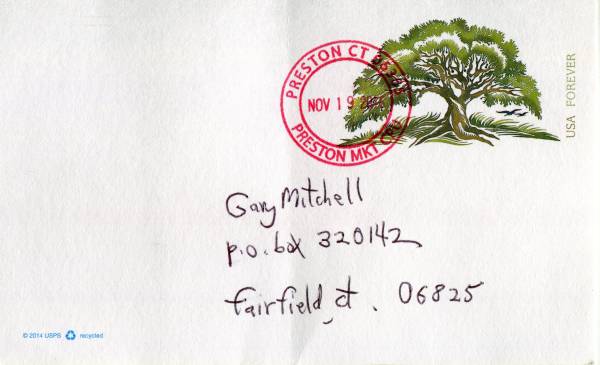 PRESTON CT
NOV 19
PRESTON MKT CPU
USA FOREVER
Gary Mitchell
p.o. box 320142
fairfield, ct. 06825
© 2014 USPS recycled